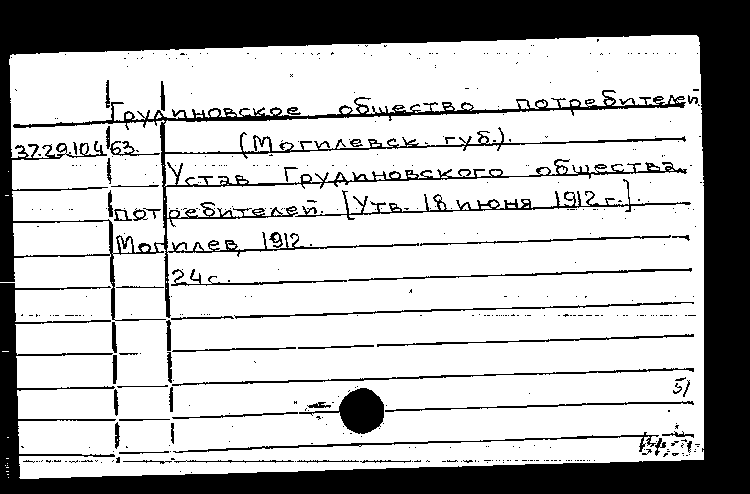 Грудиновское общество потребителей
37.29.10.4 63. (Могилевск. губ.).
Устав Грудиновского общества
потребителей. [Утв. 18 июня 1912 г.].
Могилев, 1912.
24 с.
51